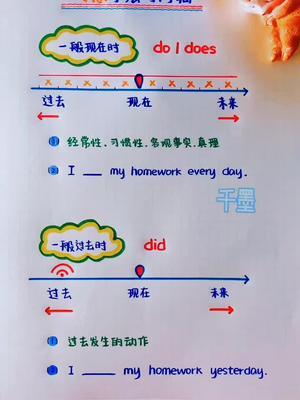 一般现在时 do | does
过去 现在 未来
① 经常性、习惯性、客观事实、真理
② I ___ my homework every day.
千墨
一般过去时 did
过去 现在 未来
① 过去发生的动作
② I ___ my homework yesterday.